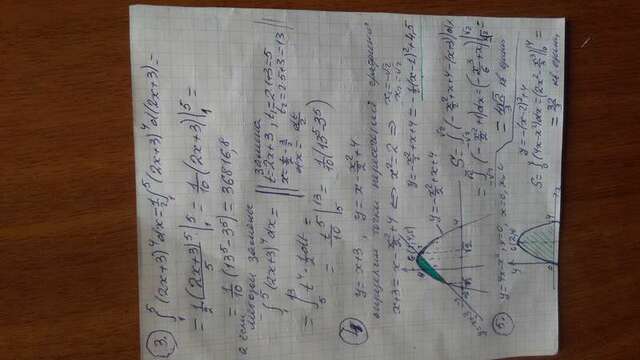 3. ∫₁⁵ (2x+3)⁴ dx = 1/2 ∫₁⁵ (2x+3)⁴ d(2x+3) =
= 1/2 (2x+3)⁵/5 |₁⁵ = 1/10 (2x+3) |₁⁵ =
= 1/10 (13⁵ - 3⁵) = 36816,8
а если
методом замены
∫₁⁵ (2x+3)⁴ dx = || замена
t = 2x+3, t₁ = 2·1+3 = 5
x = t/2 - 3/2 t₂ = 2·5+3 = 13
dx = dt/2 ||
= ∫₅¹³ t⁴ · 1/2 dt =
= t⁵/10 |₅¹³ = 1/10 (13⁵ - 3⁵)
4. y = x+3, y = x - x²/2 + 4
определим точки пересечения графиков
x+3 = x - x²/2 + 4 ⇔ x² = 2 ⇒ x₁ = -√2
x₂ = √2
y = -x²/2 + x + 4 = -1/2 (x-1)² + 4,5
(1;4,5)
y = -x²/2 + x + 4
y = x+3
S = ∫ (-x²/2 + x + 4 - (x+3)) dx
= ∫ (-x²/2 + 1) dx = (-x³/6 + x) |
= 4√2/3 кв. един
5. y = 4x - x², y = 0, x = 0,
(2;4)
y = -(x-2)² + 4
S = ∫₀⁴ (4x - x²) dx = (2x² - x³/3) |₀⁴ =
= 32/3 кв. един